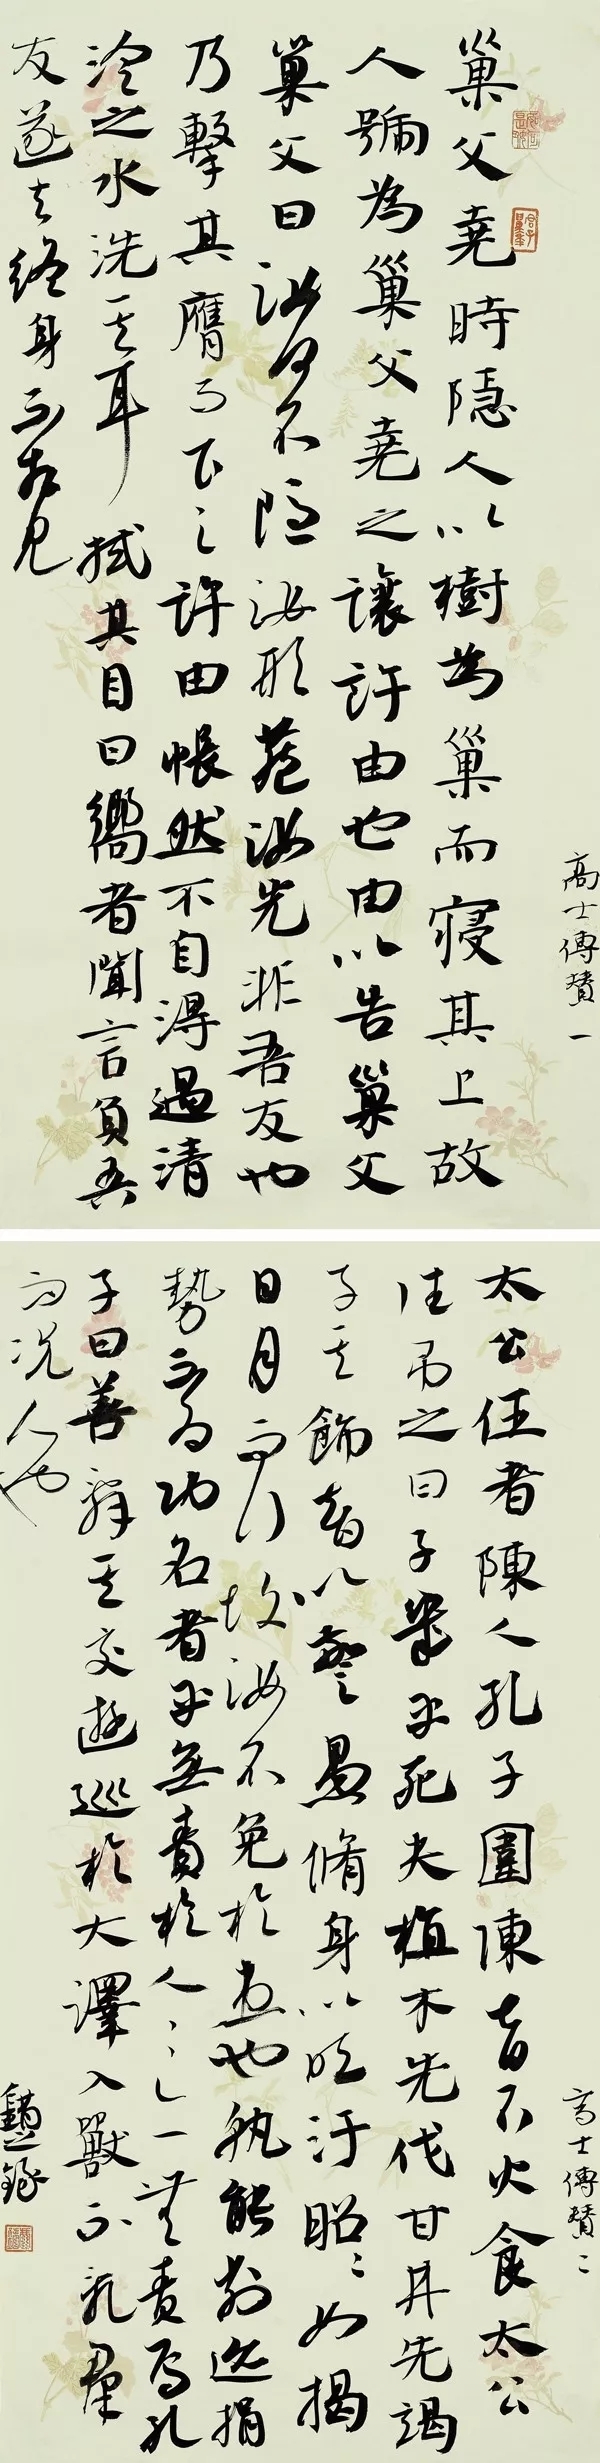 高士傳贊一
巢父堯時隱人以樹為巢而寢其上故
人號為巢父堯之讓許由也由以告巢父
巢父曰汝何不隱汝形藏汝光非吾友也
乃擊其膺而下之許由悵然不自得過清
泠之水洗其耳拭其目曰嚮者聞言負吾
友遂去終身不相見
高士傳贊二
太公任者陳人孔子圍陳七日不火食太公
往弔之曰子幾乎死夫植木先伐甘井先竭
子其飾智以驚愚脩身以明汙昭〻如揭
日月而行故汝不免於患也孰能削迹捐
勢不為功名者乎無責於人〻亦無責焉孔
子曰善辭其交遊巡於大澤入獸不亂群
而況人也